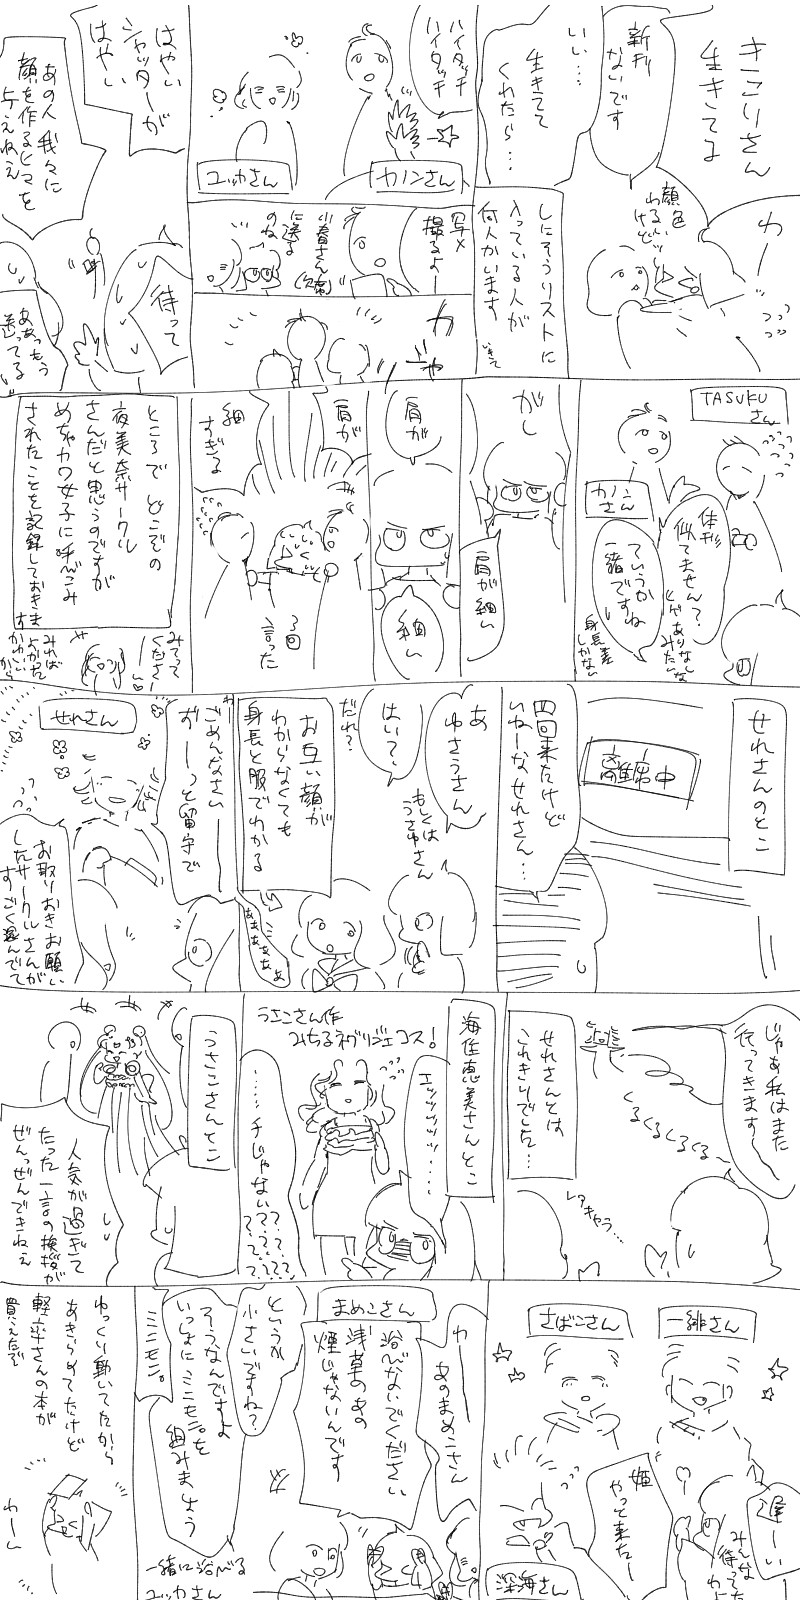 きこりさん
生きてる
わー
顔色
わるいけど
新刊
ないです
いい…
生きてて
くれたら…
しにそうリストに
入っている人が
何人かいます
いきて
ハイタッチ
ハイタッチ
カノンさん
ユッカさん
写メ
撮るよー
小春さん(欠席)
に送る
のね
わ
や
はやい
シャッターが
はやい
あの人我々に
顔を作るヒマを
与えねえ
待って
ああっもう
送ってる
TASUKU
さん
カノン
さん
体型
似てません?
ていうか
一緒ですね
身長差
しかない
がし
肩が細い
肩が
細い
肩が
細
すぎる
3回
言った
ところで どこぞの
夜美奈サークル
さんだと思うのですが
めちゃカワ女子に呼びこみ
されたことを記録しておきます
みてって
くださー
い
みれば
よかった
かわいい
から
せれさんのとこ
離席中
四回来たけど
いねーなせれさん…
あ
ゆさうさん
もしくは
うさゆさん
はい?
だれ?
お互い顔が
わからなくても
身長と服でわかる
あああああ
わー
ごめんなさい
おーっと留守で
せれさん
お取りおきお願い
したサークルさんが
すごく混んでて
じゃあ私はまた
行ってきます
くるくるくるくる〜
レアキャラ…
せれさんとは
これきりでした…
海佐恵美さんとこ
うさこさん作
みちるネグリジェコス!
エッッッッッ……
……チじゃない?????
うさこさんとこ
人気が過ぎて
たった一言の挨拶が
ぜんっぜんできねえ
一緋さん
さばこさん
遅ーい
みんな
待ってた
姫
やって来たー
深海さん
わー
あのまめこさん
まめこさん
浴びないでください
浅草のあの
煙じゃないんです
というか
小さいですね?
そうなんですよ
いっしょにミニモニ。を
組みましょう
ミニモニ。
一緒に浴べる
ユッカさん
ゆっくり動いてたから
あきらめてたけど
軽率さんの本が
買えたで
わーん